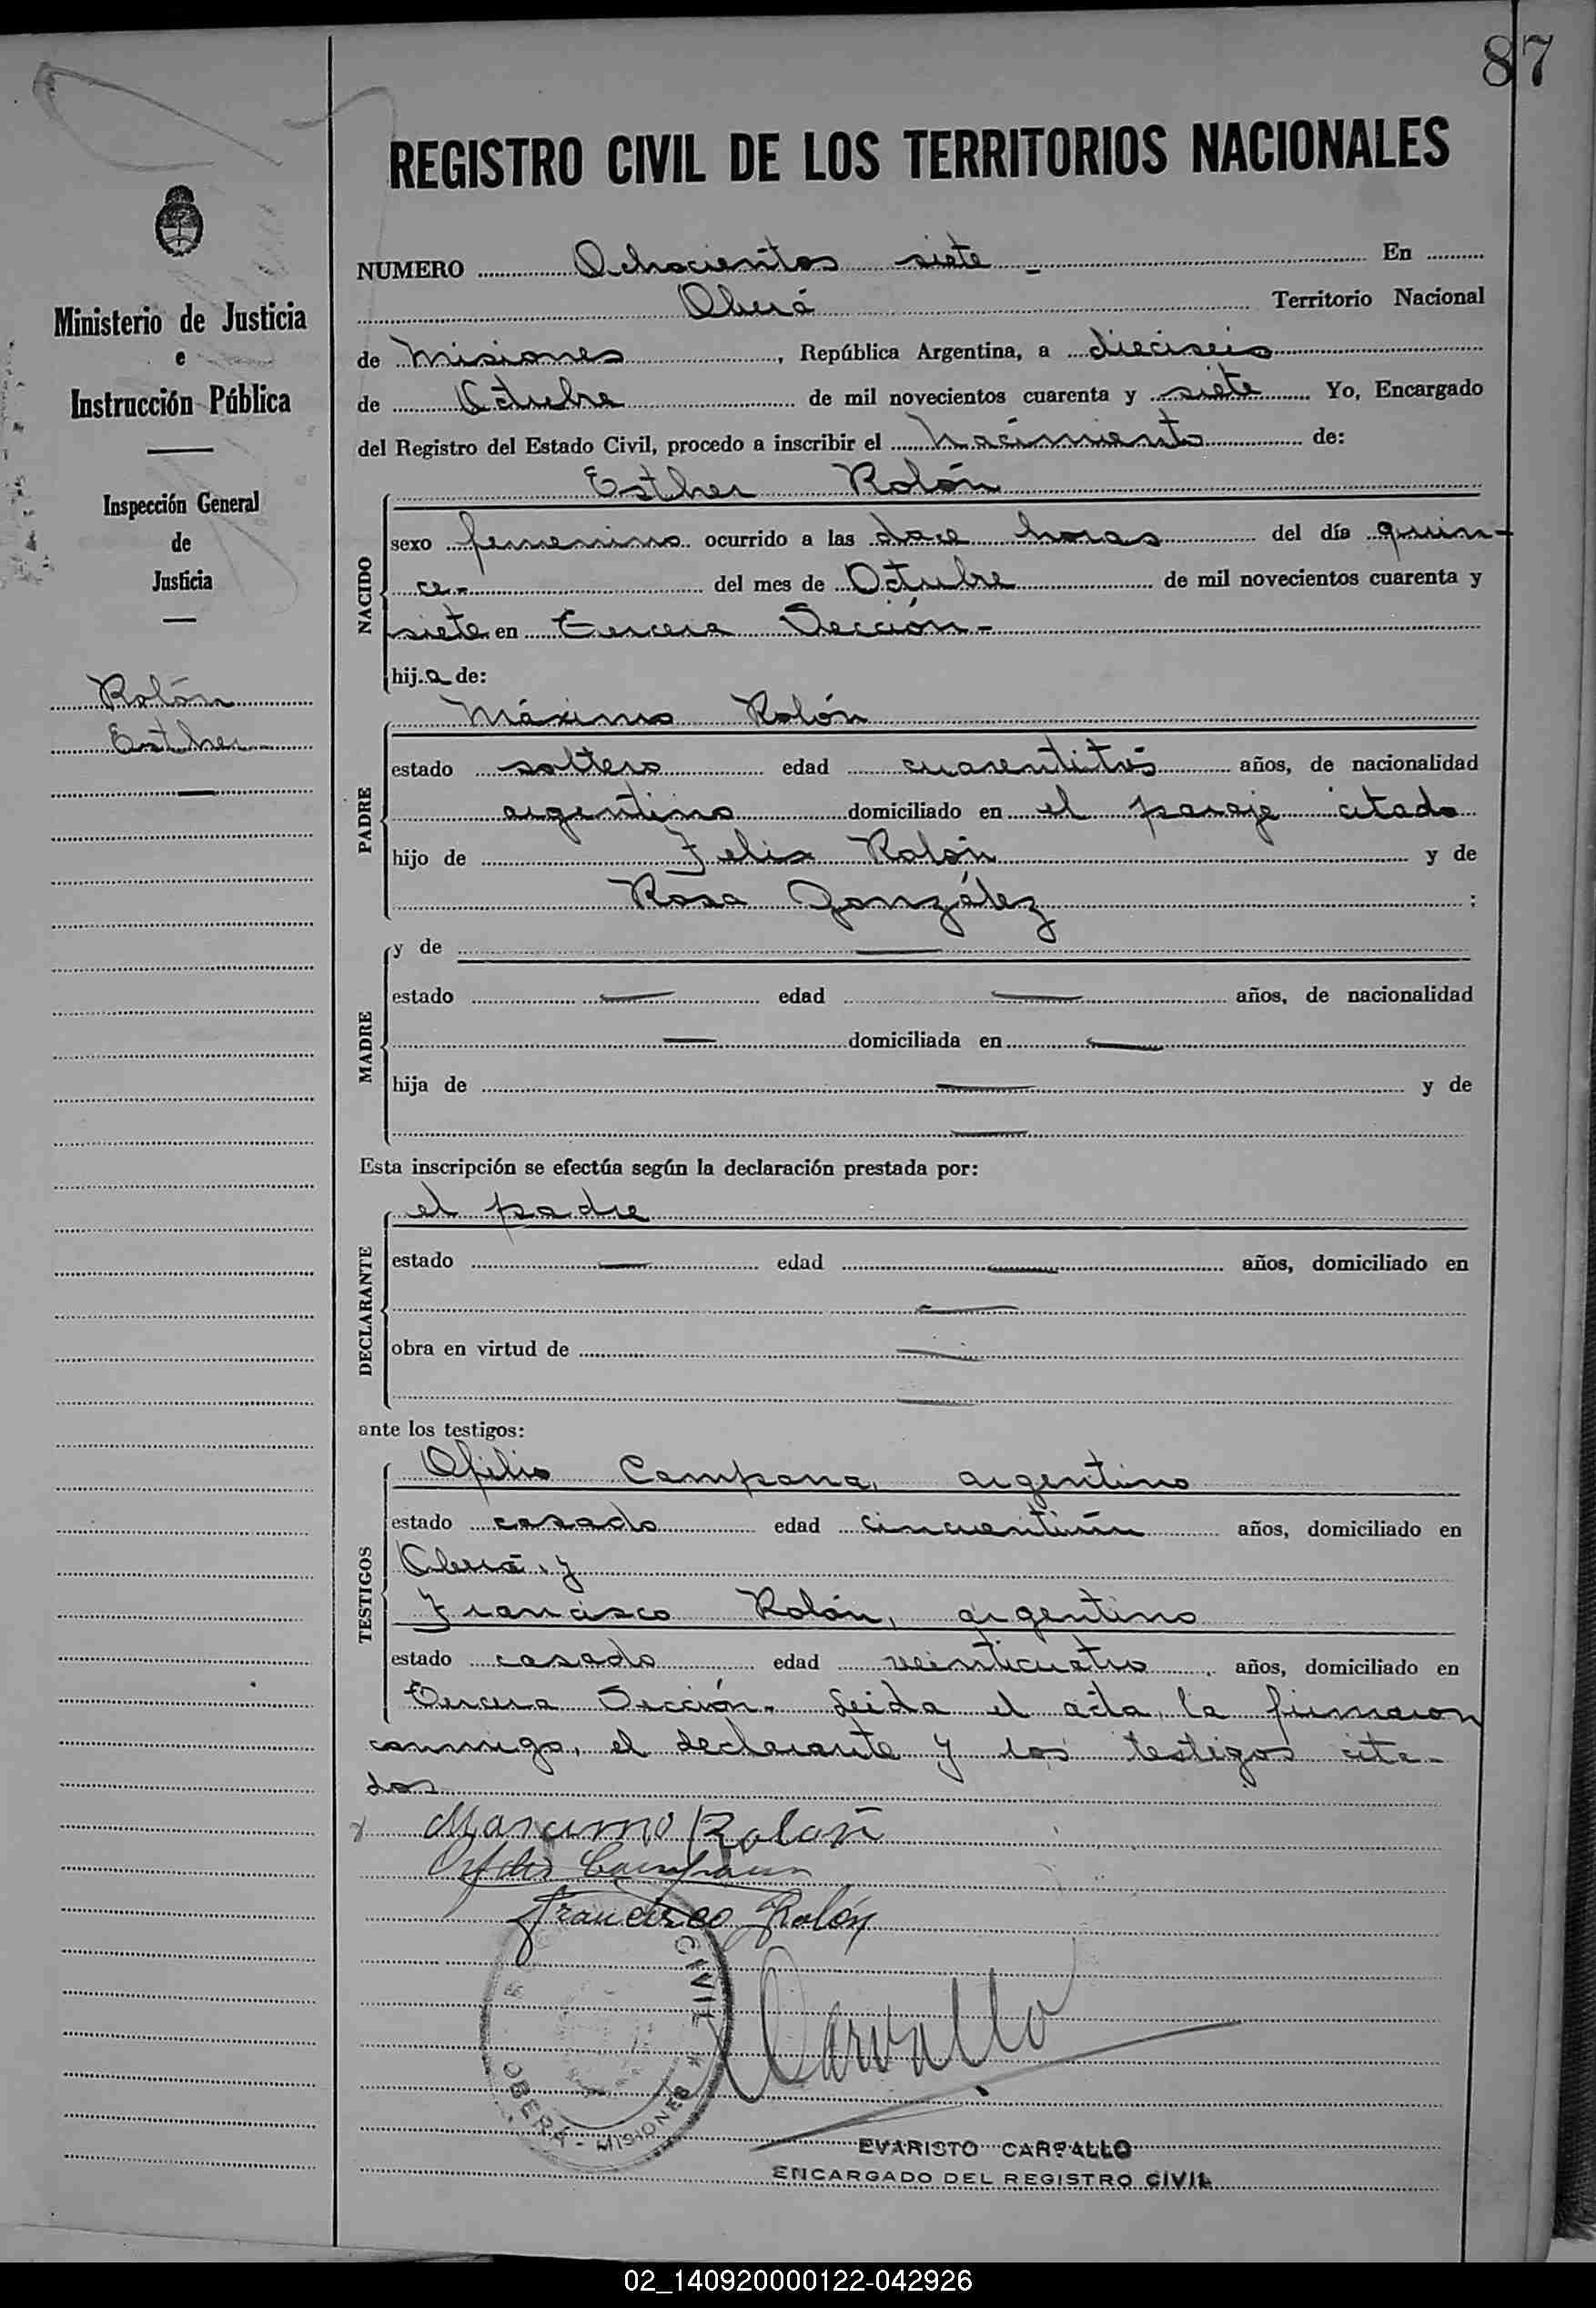 87
REGISTRO CIVIL DE LOS TERRITORIOS NACIONALES
Ministerio de Justicia
e
Instrucción Pública
Inspección General
de
Justicia
Rolón
Esther
NUMERO Ochocientos siete - En
Oberá Territorio Nacional
de Misiones, República Argentina, a dieciseis
de Octubre de mil novecientos cuarenta y siete Yo, Encargado
del Registro del Estado Civil, procedo a inscribir el nacimiento de:
NACIDO
Esther Rolón
sexo femenino ocurrido a las doce horas del día quin-
ce- del mes de Octubre de mil novecientos cuarenta y
siete en Tercera Sección-
hij.a de:
PADRE
Máximo Rolón
estado soltero edad cuarentitrés años, de nacionalidad
argentino domiciliado en el paraje citado
hijo de Felix Rolón y de
Rosa González ;
MADRE
y de —
estado — edad — años, de nacionalidad
— domiciliada en —
hija de — y de
—
Esta inscripción se efectúa según la declaración prestada por:
DECLARANTE
el padre
estado — edad — años, domiciliado en
—
obra en virtud de —
—
ante los testigos:
TESTIGOS
Ofilio Campana, argentino
estado casado edad cincuentiún años, domiciliado en
Oberá, y
Francisco Rolón, argentino
estado casado edad veinticuatro años, domiciliado en
Tercera Sección. Leida el acta, la firmaron
conmigo, el declarante y los testigos cita-
dos
Mascimo Rolon
Campana
Francisco Rolón
CIVIL
OBERÁ - MISIONES *
Carvallo
EVARISTO CARVALLO
ENCARGADO DEL REGISTRO CIVIL
02_140920000122-042926